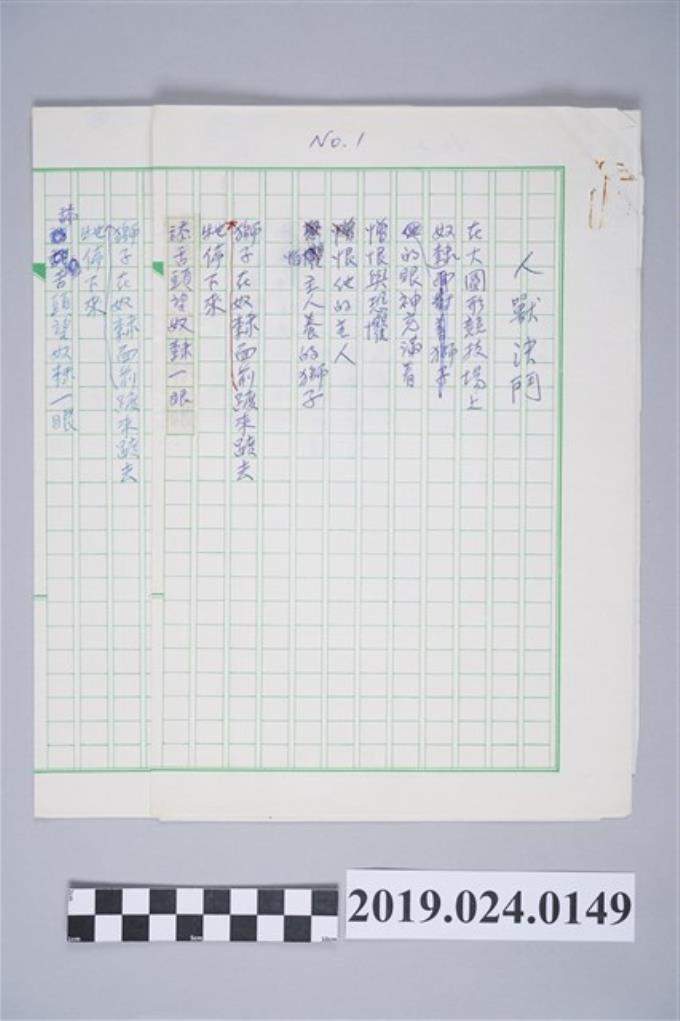 No. 1
人獸決鬥
在大圓形競技場上
奴隸面對着獅子
他的眼神充滿着
憎恨與恐懼
憎恨他的主人
怕主人養的獅子
獅子在奴隸面前踱來踱去
牠停下來
舔舌頭望奴隸一眼
獅子在奴隸面前踱來踱去
牠停下來
舌頭望奴隸一眼
2019.024.0149